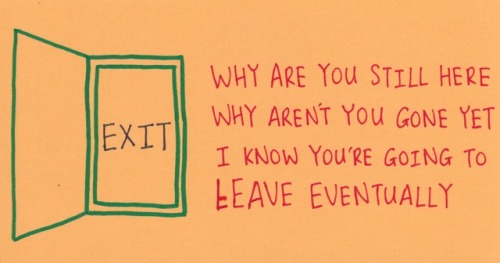 EXIT
WHY ARE YOU STILL HERE
WHY AREN'T YOU GONE YET
I KNOW YOU'RE GOING TO
LEAVE EVENTUALLY